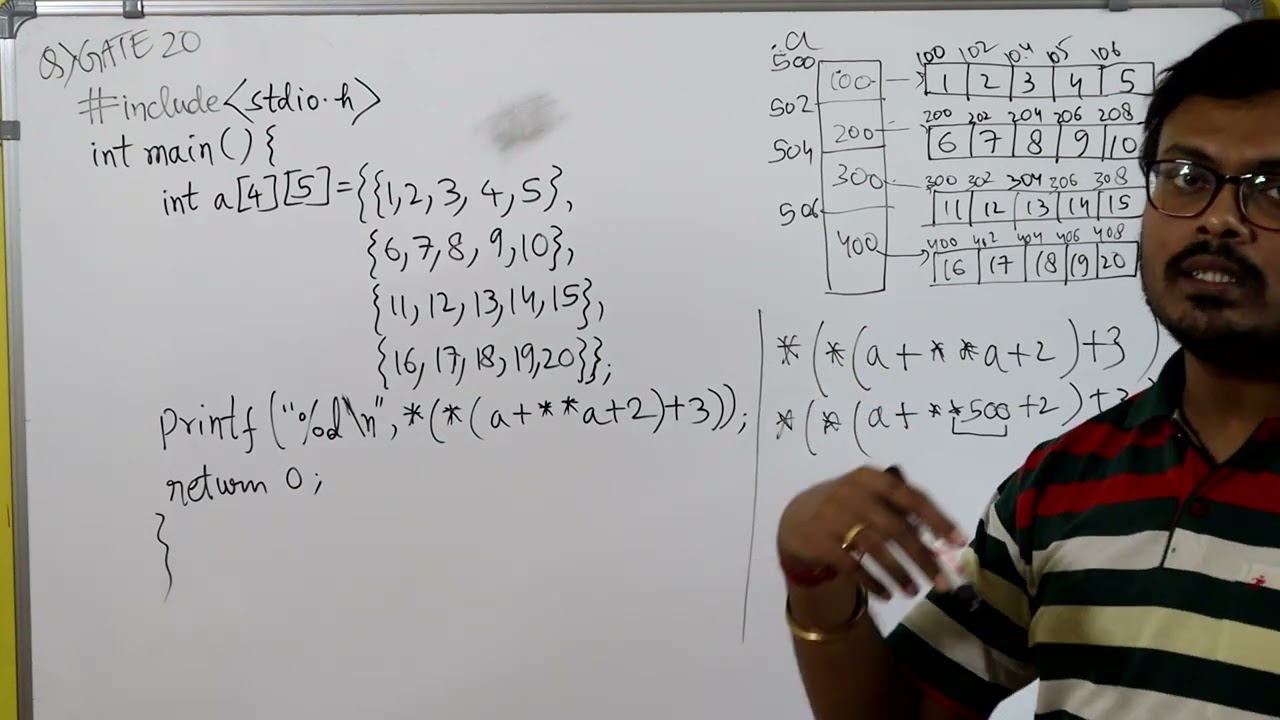 Q) GATE 20
#include<stdio.h>
int main(){
int a[4][5]={{1,2,3,4,5},
{6,7,8,9,10},
{11,12,13,14,15},
{16,17,18,19,20}};
printf("%d\n",*(*(a+**a+2)+3));
return 0;
}
a
500 100
502 200
504 300
506 400
100 102 104 105 106
1 2 3 4 5
200 202 204 206 208
6 7 8 9 10
300 302 304 306 308
11 12 13 14 15
400 402 404 406 408
16 17 18 19 20
*(*(a+**a+2)+3)
*(*(a+**500+2)+3)